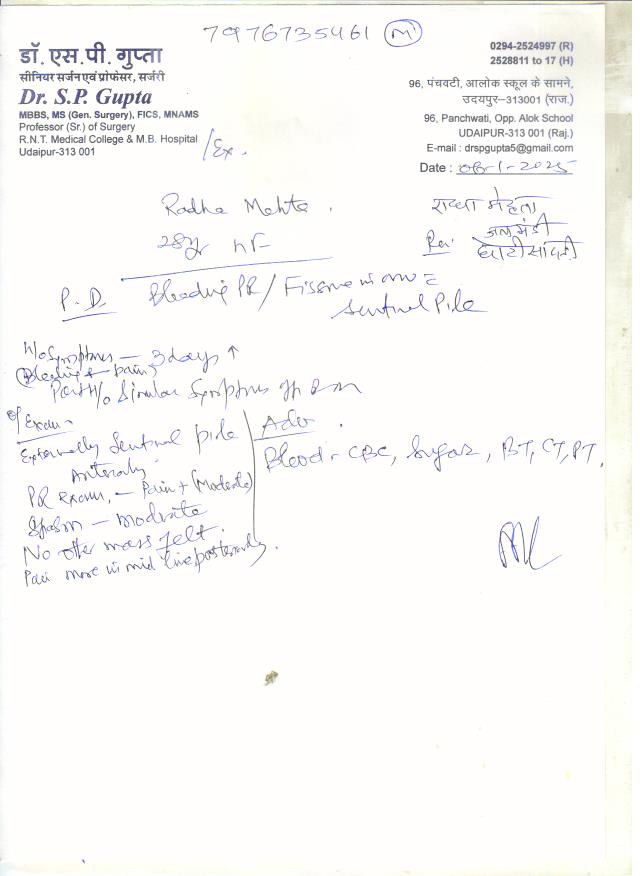 7976735461 (M)
डॉ. एस.पी. गुप्ता
सीनियर सर्जन एवं प्रोफेसर, सर्जरी
Dr. S.P. Gupta
MBBS, MS (Gen. Surgery), FICS, MNAMS
Professor (Sr.) of Surgery
R.N.T. Medical College & M.B. Hospital
Udaipur-313 001
/Ex.
0294-2524997 (R)
2528811 to 17 (H)
96, पंचवटी, आलोक स्कूल के सामने,
उदयपुर–313001 (राज.)
96, Panchwati, Opp. Alok School
UDAIPUR-313 001 (Raj.)
E-mail : drspgupta5@gmail.com
Date : -1-2025
Radha Mehta .
राधा मेहता
28yr
P.D. Bleeding PR / Fissure in ano
Sentinel Pile
H/o Symptoms – 3 days ↑
(Bleeding + pain)
Past H/o Similar Symptoms
O/Exam -
Externally Sentinel pile
Anteriorly.
PR exam, – Pain + (Moderate)
Spasm – Moderate
No other mass felt.
Pain more in mid line posteriorly.
Adv.
Blood - CBC, Sugar, BT, CT, PT.